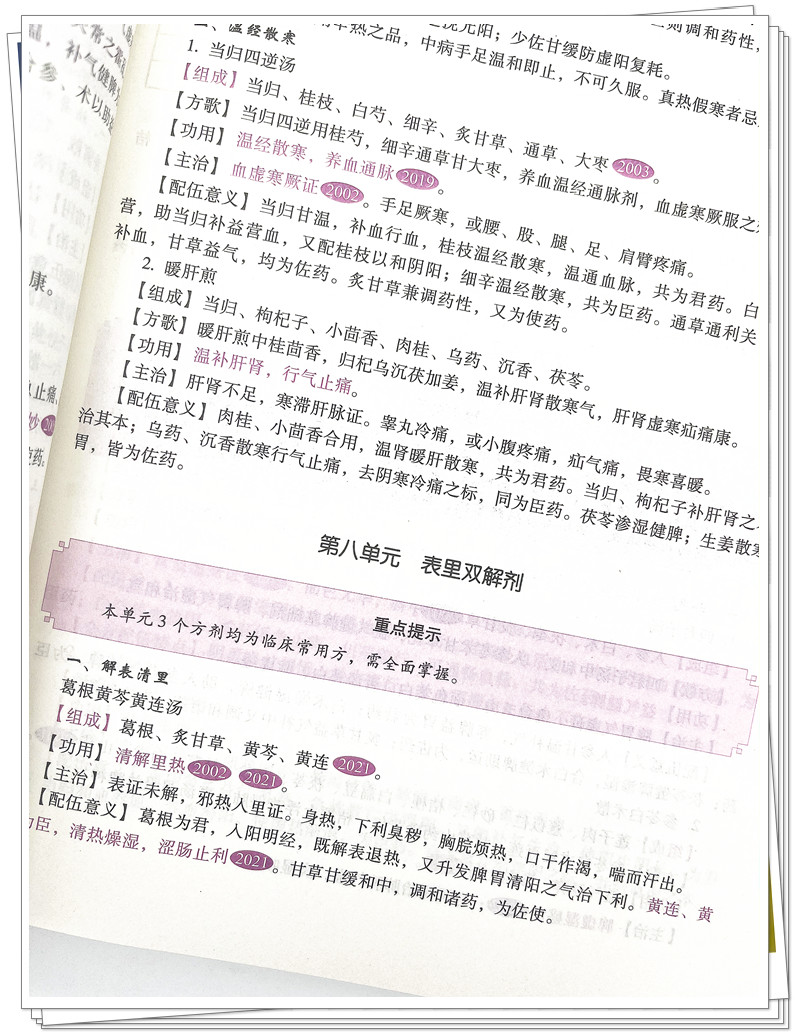 则调和药性,
抚元阳；少佐甘缓防虚阳复耗。
热之品，中病手足温和即止，不可久服。真热假寒者忌
温经散寒
1. 当归四逆汤
【组成】当归、桂枝、白芍、细辛、炙甘草、通草、大枣2003。
【方歌】当归四逆用桂芍，细辛通草甘大枣，养血温经通脉剂，血虚寒厥服之
【功用】温经散寒，养血通脉2019。
【主治】血虚寒厥证2002。手足厥寒，或腰、股、腿、足、肩臂疼痛。
【配伍意义】当归甘温，补血行血，桂枝温经散寒，温通血脉，共为君药。白
营，助当归补益营血，又配桂枝以和阴阳；细辛温经散寒，共为臣药。通草通利关
补血，甘草益气，均为佐药。炙甘草兼调药性，又为使药。
2. 暖肝煎
【组成】当归、枸杞子、小茴香、肉桂、乌药、沉香、茯苓。
【方歌】暖肝煎中桂茴香，归杞乌沉茯加姜，温补肝肾散寒气，肝肾虚寒疝痛康。
【功用】温补肝肾，行气止痛。
【主治】肝肾不足，寒滞肝脉证。睾丸冷痛，或小腹疼痛，疝气痛，畏寒喜暖。
【配伍意义】肉桂、小茴香合用，温肾暖肝散寒，共为君药。当归、枸杞子补肝肾之
治其本；乌药、沉香散寒行气止痛，去阴寒冷痛之标，同为臣药。茯苓渗湿健脾；生姜散寒
胃，皆为佐药。
第八单元 表里双解剂
重点提示
本单元3个方剂均为临床常用方，需全面掌握。
一、解表清里
葛根黄芩黄连汤
【组成】葛根、炙甘草、黄芩、黄连2021。
【功用】清解里热2002 2021。
【主治】表证未解，邪热入里证。身热，下利臭秽，胸脘烦热，口干作渴，喘而汗出。
【配伍意义】葛根为君，入阳明经，既解表退热，又升发脾胃清阳之气治下利。黄连、黄
为臣，清热燥湿，涩肠止利2021。甘草甘缓和中，调和诸药，为佐使。
补气健脾
术以助
康。
止痛
妙